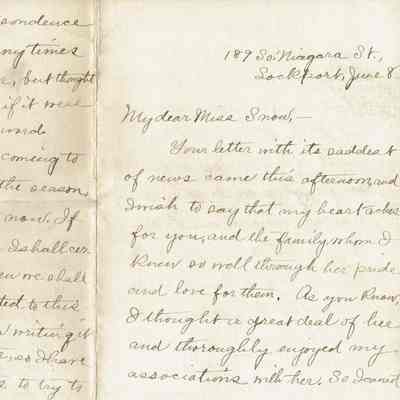 spondence
ny times
, but thought
if it were
ward
coming to
the season,
now. If
I shall cer
en we shall
ted to this
writing it
, so I have
s to try to
189 So. Niagara St.,
Lockport, June 8
My dear Miss Snow, —
Your letter with its saddest
of news came this afternoon, and
I wish to say that my heart aches
for you, and the family whom I
knew so well through her pride
and love for them. As you know,
I thought a great deal of her
and thoroughly enjoyed my
associations with her. So I cannot